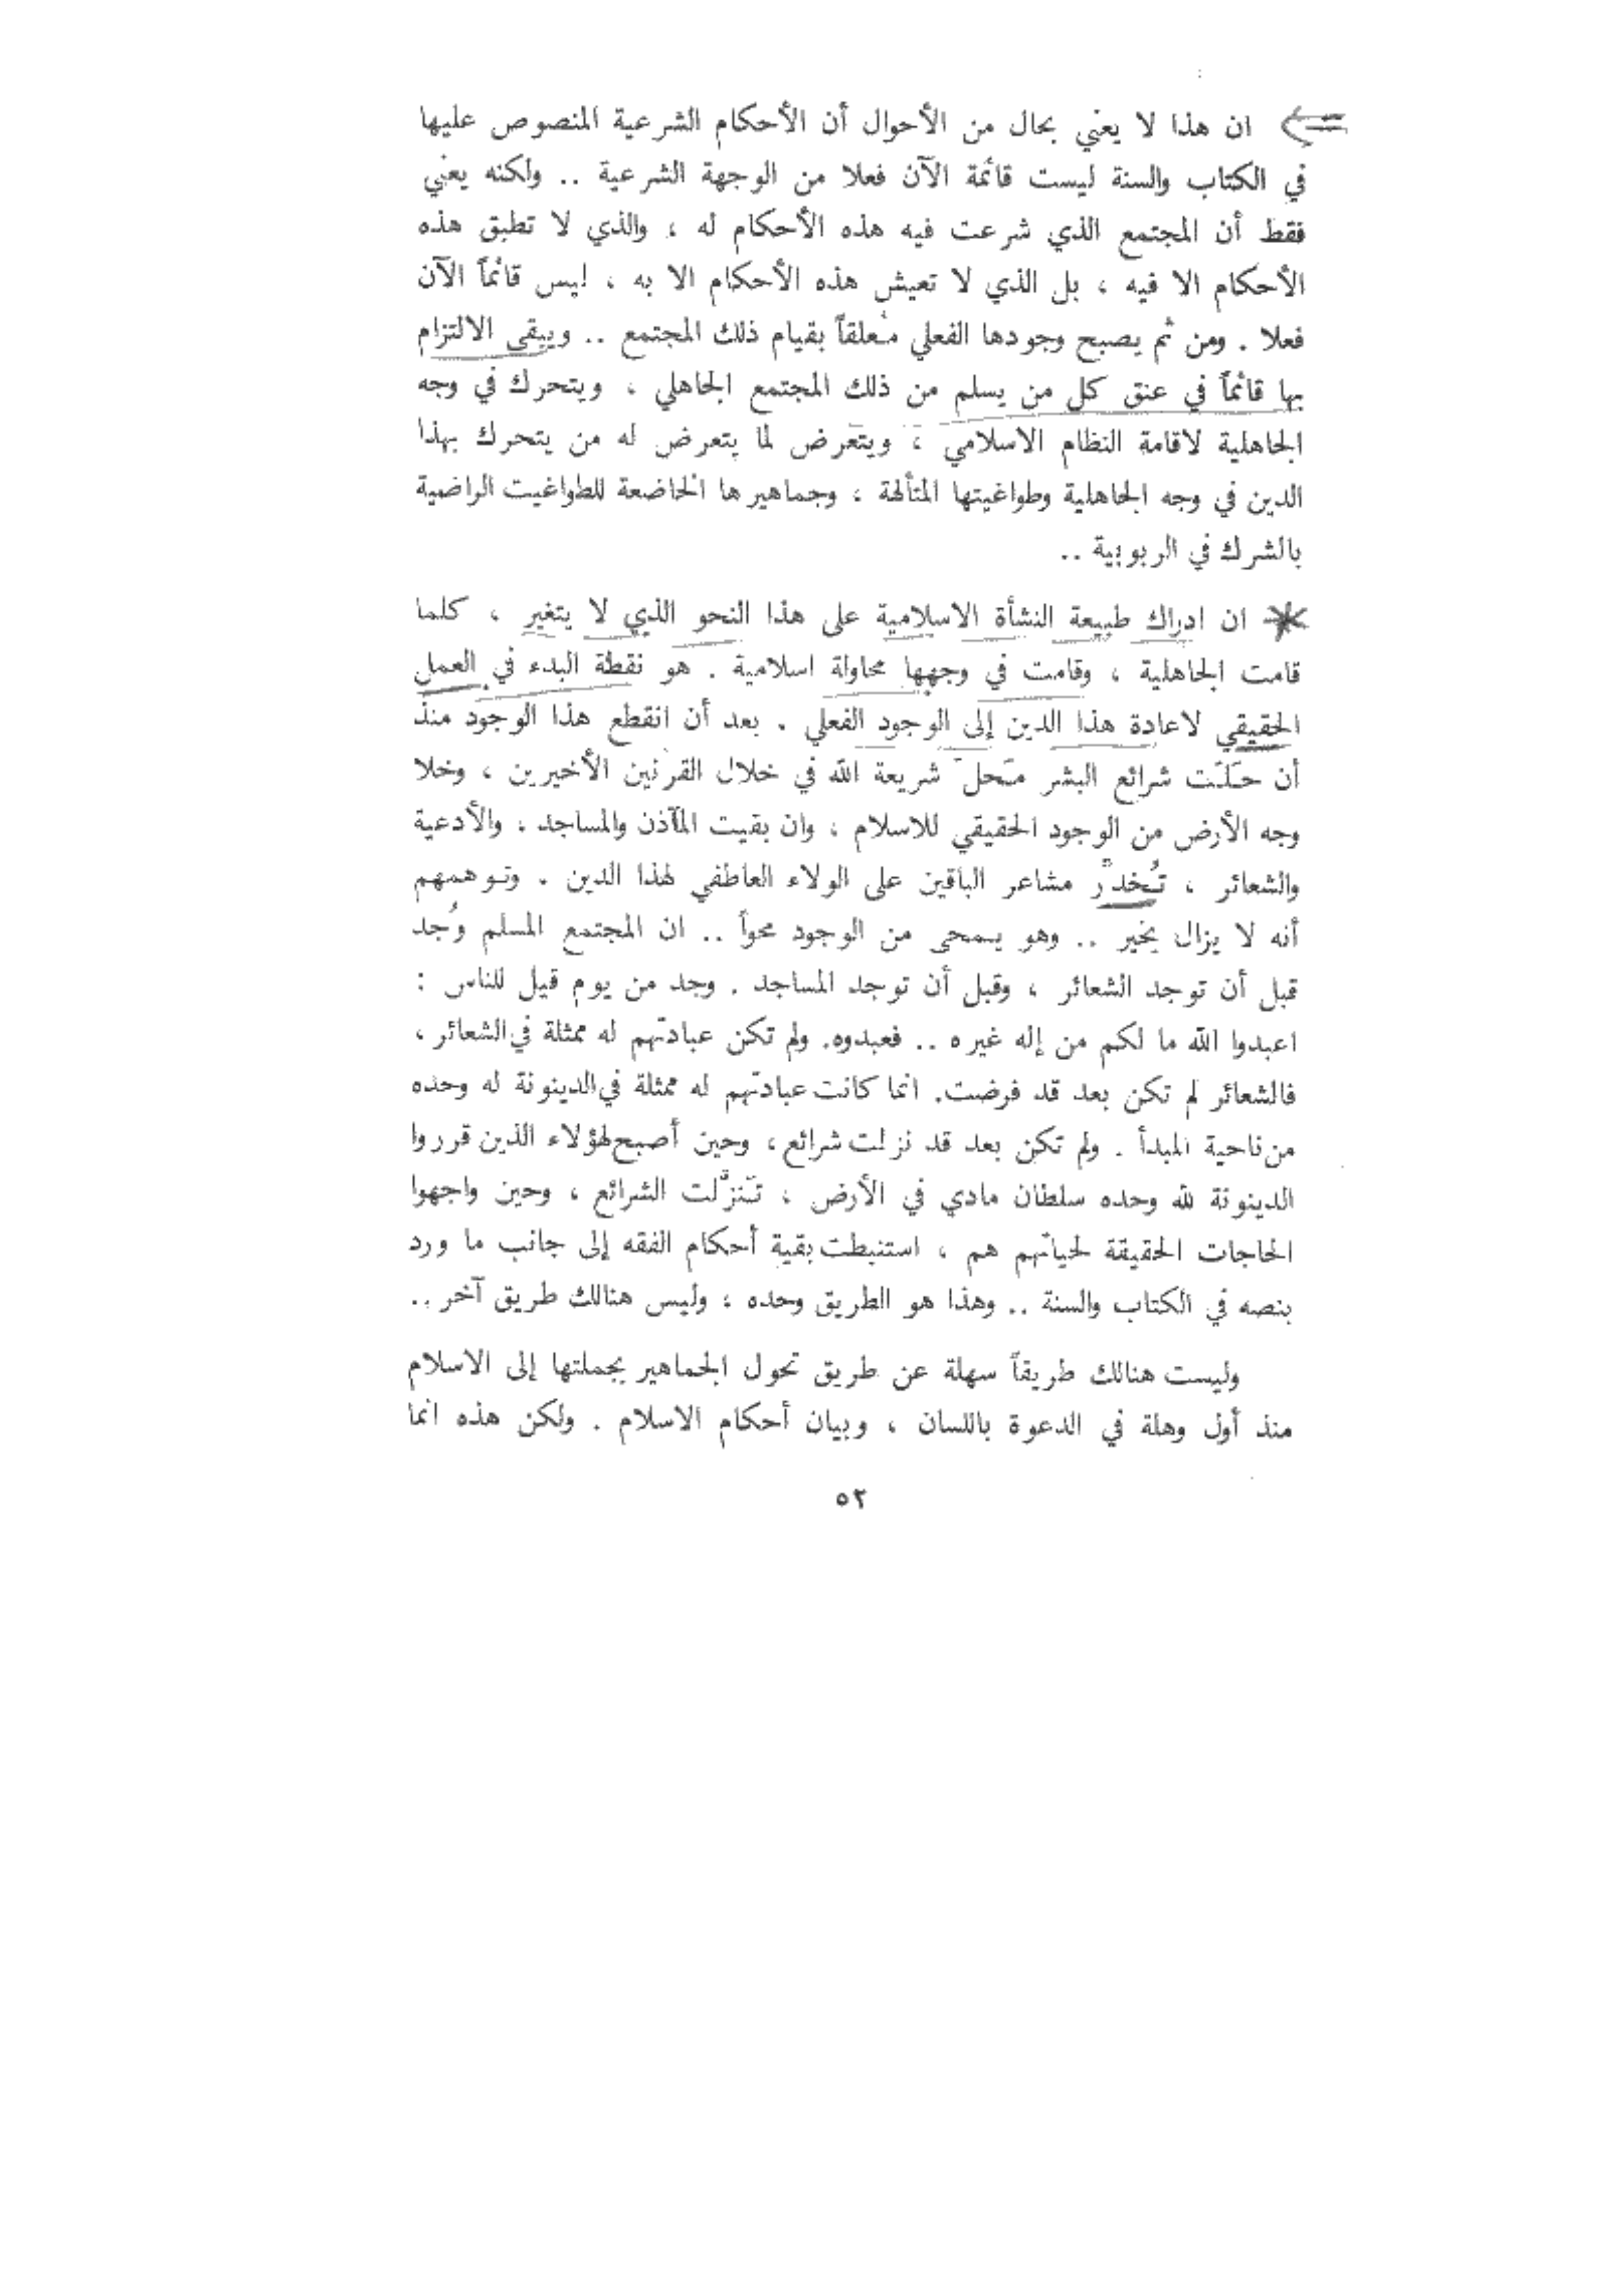 ان هذا لا يعني بحال من الأحوال أن الأحكام الشرعية المنصوص عليها
في الكتاب والسنة ليست قائمة الآن فعلا من الوجهة الشرعية .. ولكنه يعني
فقط أن المجتمع الذي شرعت فيه هذه الأحكام له ، والذي لا تطبق هذه
الأحكام الا فيه ، بل الذي لا تعيش هذه الأحكام الا به ، ليس قائماً الآن
فعلا . ومن ثم يصبح وجودها الفعلي مُعلقاً بقيام ذلك المجتمع .. ويبقى الالتزام
بها قائماً في عنق كل من يسلم من ذلك المجتمع الجاهلي ، ويتحرك في وجه
الجاهلية لاقامة النظام الاسلامي ، ويتعرض لما يتعرض له من يتحرك بهذا
الدين في وجه الجاهلية وطواغيتها المتألهة ، وجماهيرها الخاضعة للطواغيت الراضية
بالشرك في الربوبية ..
ان ادراك طبيعة النشأة الاسلامية على هذا النحو الذي لا يتغير ، كلما
قامت الجاهلية ، وقامت في وجهها محاولة اسلامية . هو نقطة البدء في العمل
الحقيقي لاعادة هذا الدين إلى الوجود الفعلي . بعد أن انقطع هذا الوجود منذ
أن حَلَّت شرائع البشر مَحل شريعة الله في خلال القرنين الأخيرين ، وخلا
وجه الأرض من الوجود الحقيقي للاسلام ، وان بقيت المآذن والمساجد ، والأدعية
والشعائر ، تُخدِّر مشاعر الباقين على الولاء العاطفي لهذا الدين . وتوهمهم
أنه لا يزال بخير .. وهو يمحى من الوجود محواً .. ان المجتمع المسلم وُجد
قبل أن توجد الشعائر ، وقبل أن توجد المساجد . وجد من يوم قيل للناس :
اعبدوا الله ما لكم من إله غيره .. فعبدوه. ولم تكن عبادتهم له ممثلة في الشعائر ،
فالشعائر لم تكن بعد قد فرضت. انما كانت عبادتهم له ممثلة في الدينونة له وحده
من ناحية المبدأ . ولم تكن بعد قد نزلت شرائع، وحين أصبح لهؤلاء الذين قرروا
الدينونة لله وحده سلطان مادي في الأرض ، تَنزَّلت الشرائع ، وحين واجهوا
الحاجات الحقيقة لحياتهم هم ، استنبطت بقية أحكام الفقه إلى جانب ما ورد
بنصه في الكتاب والسنة .. وهذا هو الطريق وحده ؛ وليس هنالك طريق آخر ..
وليست هنالك طريقاً سهلة عن طريق تحول الجماهير بجملتها إلى الاسلام
منذ أول وهلة في الدعوة باللسان ، وبيان أحكام الاسلام . ولكن هذه انما
٥٢